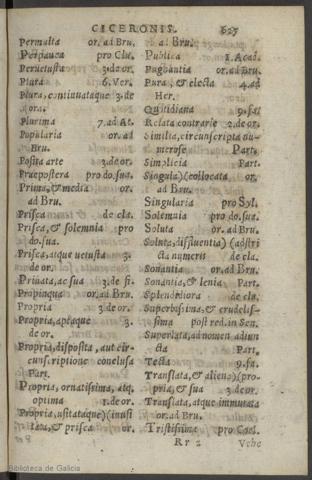 CICERONIS. 627
Permulta or. ad Bru.
Perpauca pro Clu.
Peruetusta 3. de or.
Plura 6. Ver.
Plura, continuataque 3. de
ora.
Plurima 7. ad At.
Popularia or. ad
Bru.
Posita arte 3. de or.
Præpostera pro do. sua.
Prima, & media or.
ad Bru.
Prisca de cla.
Prisca, & solemnia pro
do. sua.
Prisca, atque uetusta 3.
de or.
Priuata, ac sua 3. de fi.
Propinqua or. ad Bru.
Propria 3. de or.
Propria, aptaque 3.
de or.
Propria, disposita, aut cir-
cunscriptione conclusa
Part.
Propria, ornatissima, atq.
optima 1. de or.
Propria, usitataque) (inusi
tata, & prisca or.
de ad Bru.
Publica 1. Acad.
Pugnantia or. ad Bru.
Pura, & electa 4. ad
Her.
Quotidiana 9. fa.
Relata contrarie 2. de or.
Similia, circunscripta nu-
merose Part.
Simplicia Part.
Singula) (collocata or.
ad Bru.
Singularia pro Syl.
Solemnia pro do. sua.
Soluta or. ad Bru.
Soluta, diffluentia) (adstri
cta numeris de cla.
Sonantia or. ad Bru.
Sonantia, & lenia Part.
Splendidiora de cla.
Superbissima, & crudelis-
sima post red. in Sen.
Superlata, ad nomen adiun
cta Part.
Tecta 9. fa.
Translata, & aliena) (pro-
pria, & sua 3. de or.
Translata, atque immutata
or. ad Bru.
Tristissima pro Cael.
Rr 2 Vehe
Biblioteca de Galicia